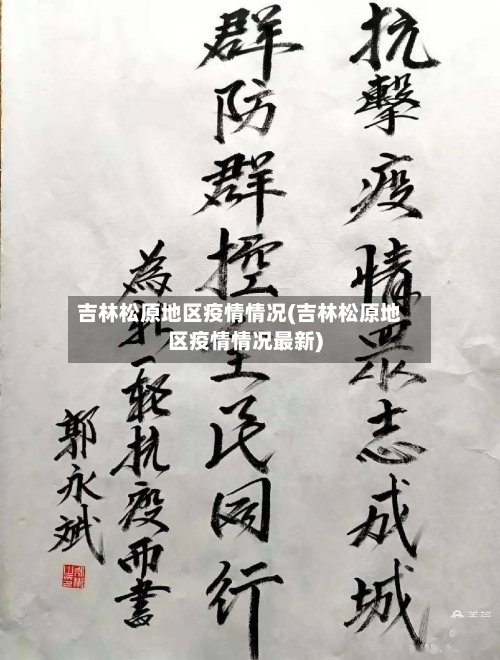 抗擊疫情眾志成城
群防群控全民同行
為新一輪抗疫而書
郭永斌
吉林松原地区疫情情况(吉林松原地
区疫情情况最新)